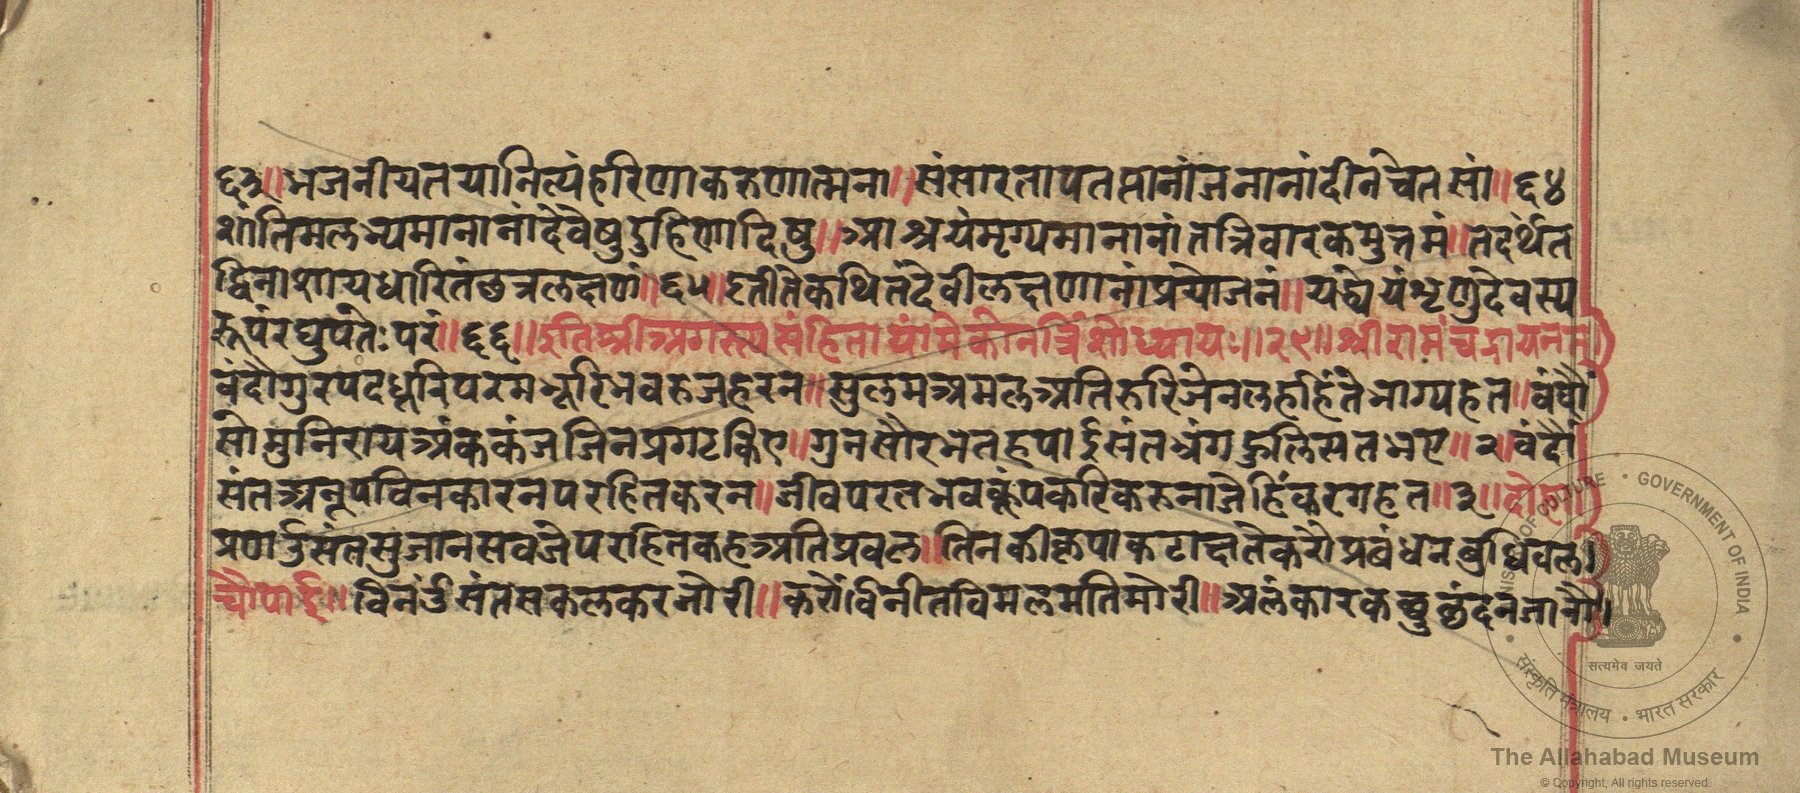 ६३॥ भजनीयतयानित्यंहरिणाकरुणात्मना॥ संसारतापतप्तानांजनानांदीनचेतसां॥ ६४
शांतिमलभ्यमानानांदेवेषुद्रुहिणादिषु॥ आश्रयंमृग्यमानानांतन्निवारकमुत्तमं॥ तदर्थंत
द्विनाशायधारितंछत्रलक्षणं॥ ६५॥ इतीतंकथितंदेवीलक्षणानांप्रयोजनं॥ यद्ध्येयंशृणुदेवस्य
रूपंरघुपतेःपरं॥ ६६॥ इतिश्रीअगस्त्यसंहितायांमेकोनत्रिंशोध्यायः॥ २९॥ श्रीरामचंद्रायनमः
वंदौगुरपदधूरिपरमभूरिभवरुजहरन॥ सुलभअमलअतिरुरिजेनलहहिंतेभाग्यहत॥ वंदौं
सोमुनिरायअंककंजजिनप्रगटकिए॥ गुनसौरभतहपाईसंतभृंगफुलितभए॥ २॥ वंदौं
संतअनूपविनकारनपरहितकरन॥ जीवपरतभवकूंपकरिकरुनाजेहिंकरगहत॥ ३॥ दोहा
प्रणऊंसंतसुजानसवजेपरहितकहअतिप्रवल॥ तिनकीकृपाकटाक्षतेकरौप्रबंधनबुधिवल।
चौपाई॥ विनऊंसंतसकलकरजोरी॥ करौंविनीतविमलमतिमोरी॥ अलंकारकछुछंदनजानौ।
संस्कृति मंत्रालय • भारत सरकार
MINISTRY OF CULTURE • GOVERNMENT OF INDIA
सत्यमेव जयते
The Allahabad Museum
© Copyright, All rights reserved.